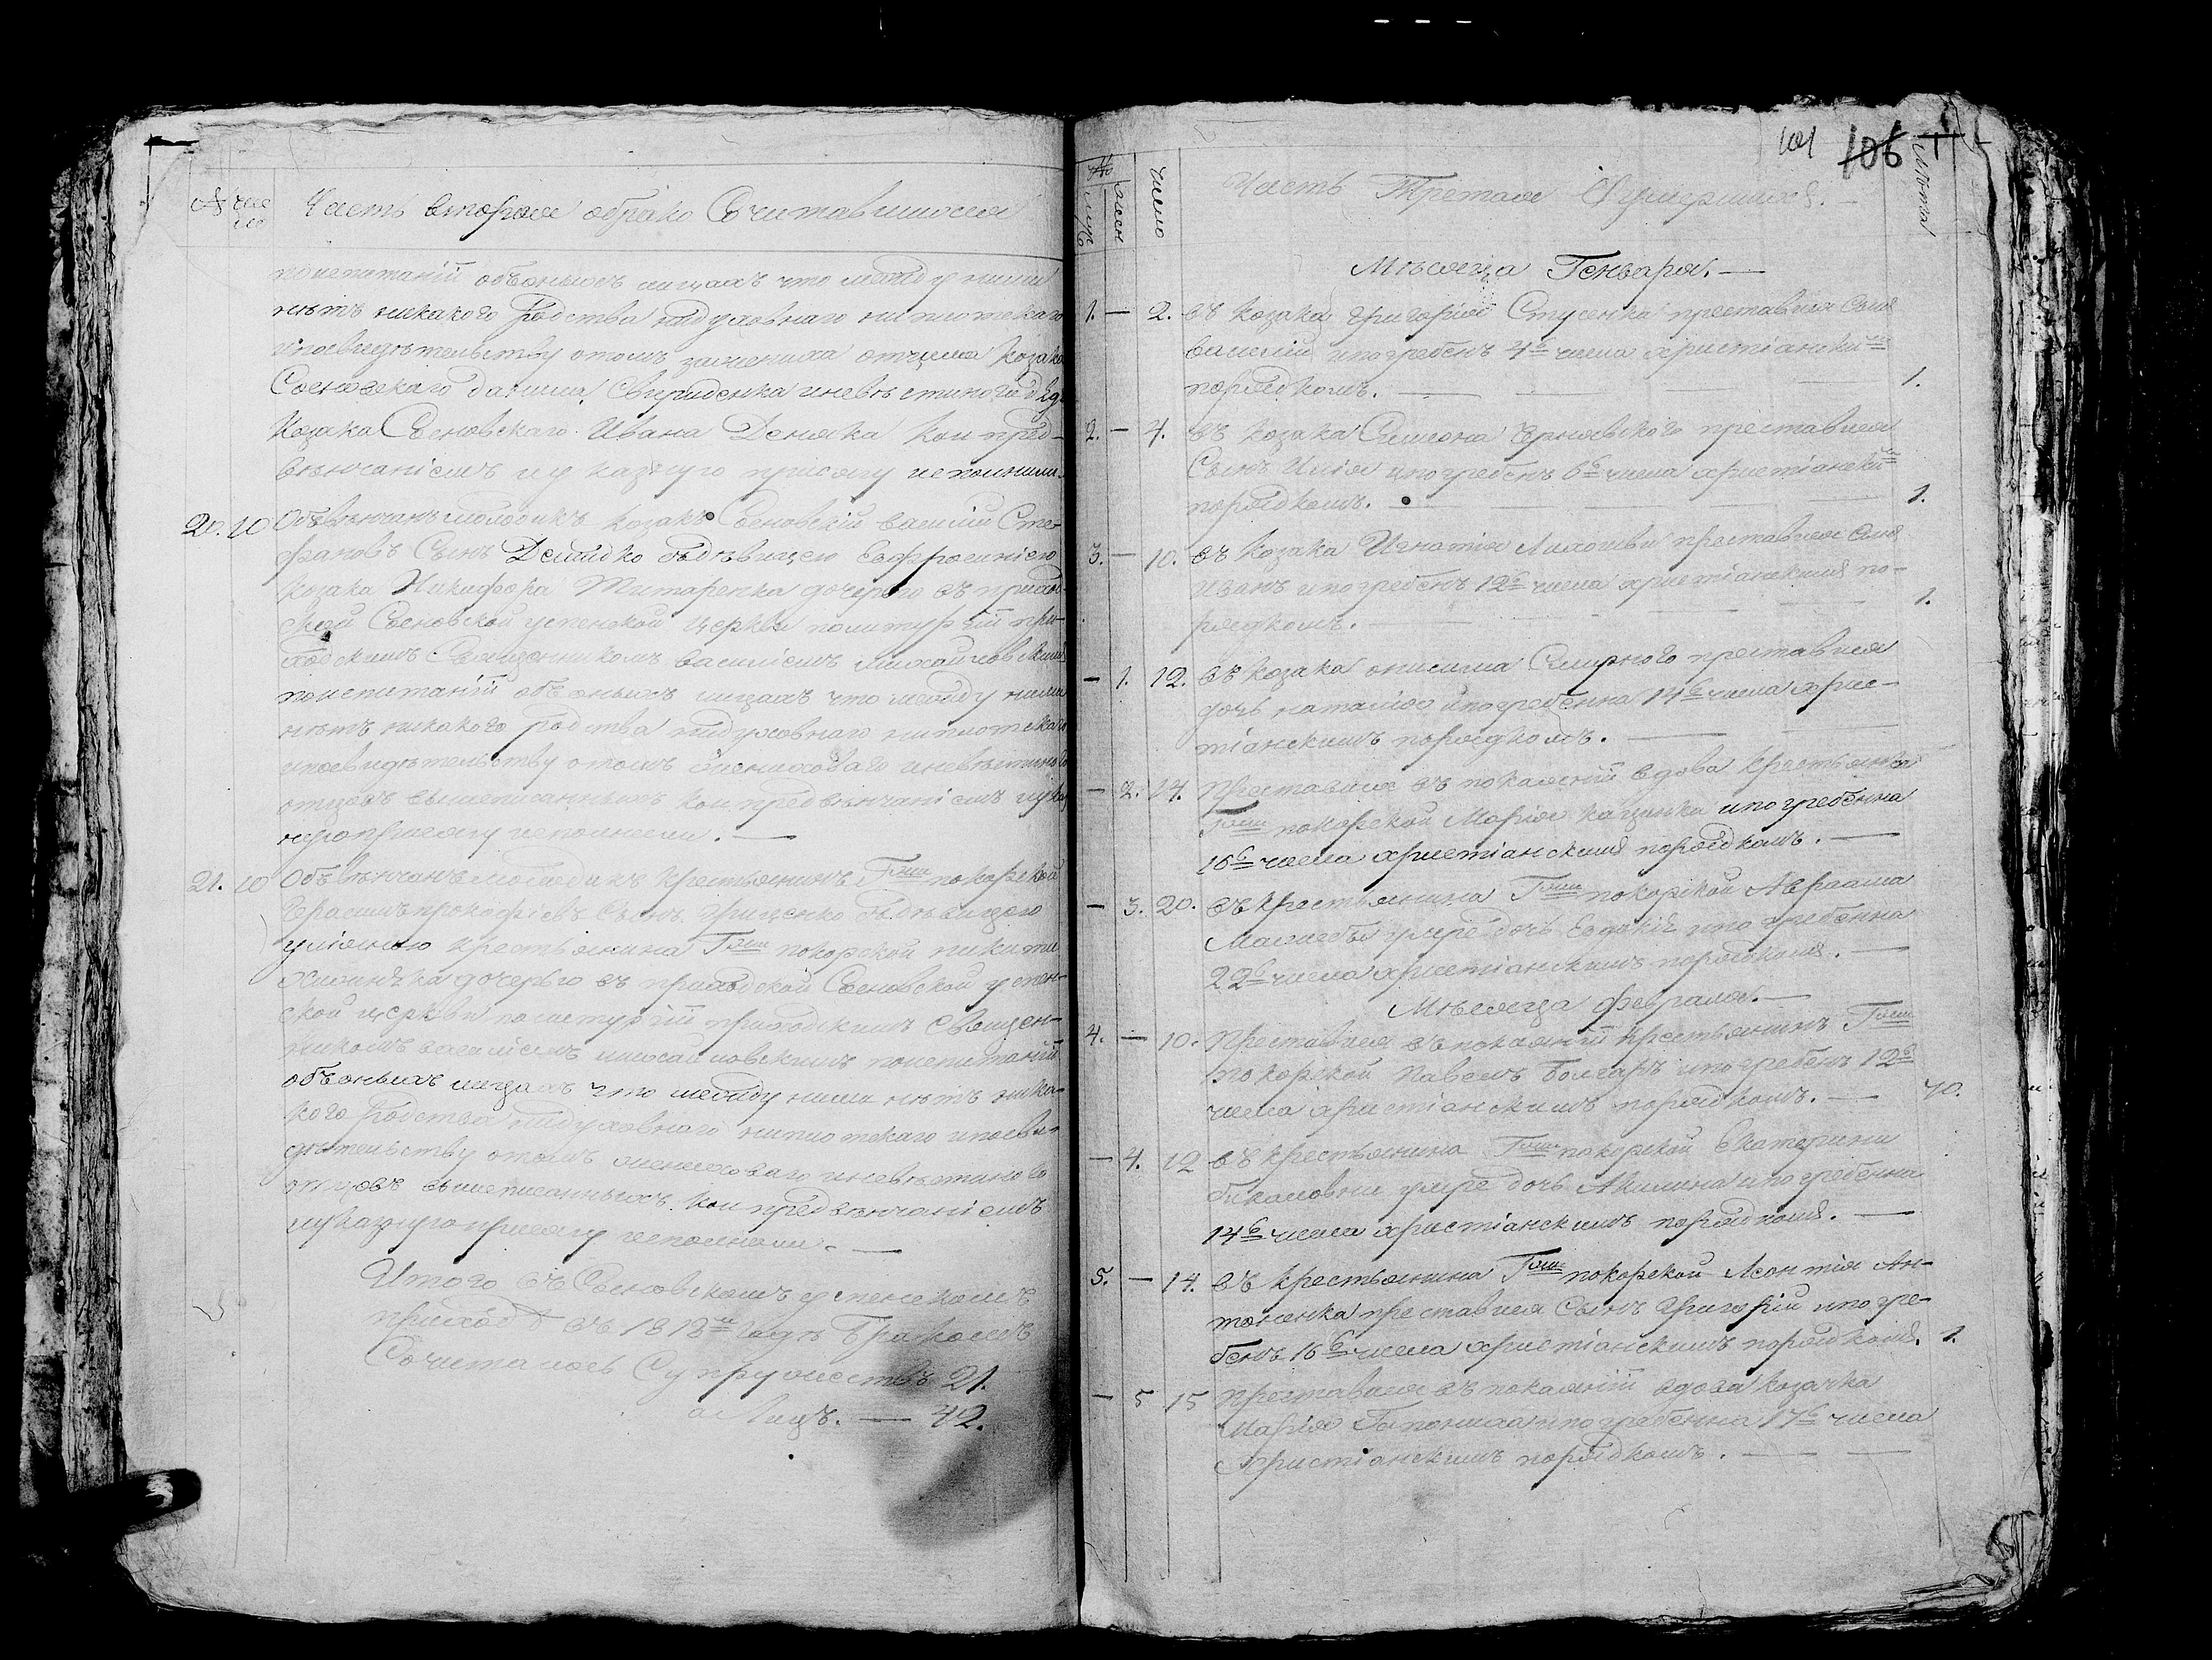 № Чис
ло
Часть вторая обрако Сочитавшихся
поиспитаніи объоныхъ лицахъ что между ними
нѣтъ никакого Родства нидуховнаго ниплотскаго
ипосвидѣтельству отомъ зажениха отчима козака
Сосновскаго данила Свириденка иневѣстиного
Козака Сосновскаго Ивана Деняка кои пред-
вѣнчаніемъ иуказную присягу исполнили.
20. 10 Объвѣнчанъ молодикъ козакъ Сосновскій василій Сте-
фановъ Сынъ Демидко съдѣвицею Евфросиніею
козака Никифора Титаренка дочерью въ приход-
ской Сосновской успенской церкви политургіи при-
ходскимъ Священникомъ василіемъ михайловскимъ
поиспитаніи объоныхъ лицахъ что между ними
нѣтъ никакого родства нидуховнаго ниплотскаго
ипосвидѣтельству отомъ жениховаго иневѣстиного
отцевъ вышеписанныхъ кои предвѣнчаніемъ иуказ
ную присягу исполнили. —
21. 10 Объвѣнчанъ молодикъ крестьянинъ Гжи покорской
Герасимъ прокофіевъ Сынъ Грищенко съдѣвицею
уліяною крестьянина Гжи покорской никити
дочерью въ приходской Сосновской успен-
ской церкви политургіи приходскимъ Священ-
никомъ василіемъ михайловскимъ поиспитаніи
объоныхъ лицахъ что между ними нѣтъ ника-
кого родства нидуховнаго ниплотскаго ипосви-
дѣтельству отомъ жениховаго иневѣстиного
отцовъ вышеписанныхъ кои предвѣнчаніемъ
иуказную присягу исполнили. —
Итого въ Сосновскомъ успенскомъ
приходѣ въ 1818м Годѣ бракомъ
Сочеталось Супружествъ 21.
а Лицъ. — 42.
101 106
№ муж жен число
Часть Третая Оумершихъ. —
Лѣта
Мѣсяца Генваря. —
1. — 2. въ козака григорія Стусенка преставися Сынъ
василій ипогребенъ 4го числа христіанскимъ
порядкомъ. — 1.
2. — 4. въ козака Симеона Чернявского преставися
Сынъ Илія ипогребенъ 6го числа христіанскимъ
порядкомъ. — 1.
3. — 10. въ козака Игнатія преставися Сынъ
иванъ ипогребенъ 12го числа христіанскимъ по-
рядкомъ. — 1.
— 1. 12. въ козака онисима Смирного преставися
дочь наталія ипогребенна 14го числа хрис-
тіанскимъ порядкомъ. —
— 2. 14. Преставися въ покаяніи вдова крестьянка
Гжи покорской Марія кацинка ипогребенна
16го числа христіанскимъ порядкомъ. —
— 3. 20. въ крестьянина Гжи покорской Авраама
умре дочь Евдокія ипогребенна
22го числа христіанскимъ порядкомъ. —
Мѣсяца февраля. —
4. — 10. Преставися въ покаяніи крестьянинъ Гжи
покорской Павелъ Болгаръ ипогребенъ 12го
числа христіанскимъ порядкомъ. — 40.
— 4. 12 въ крестьянина Гжи покорской Екатерини
умре дочь Акилина ипогребенна
14го числа христіанскимъ порядкомъ. —
5. — 14. въ крестьянина Гжи покорской Леонтія Ан-
тоненка преставися Сынъ Григорій ипогре-
бенъ 16го числа христіанскимъ порядкомъ. 1.
— 5 15 преставися въ покаяніи вдова козачка
Марія Гапониха ипогребенна 17го числа
Христіанскимъ порядкомъ. —